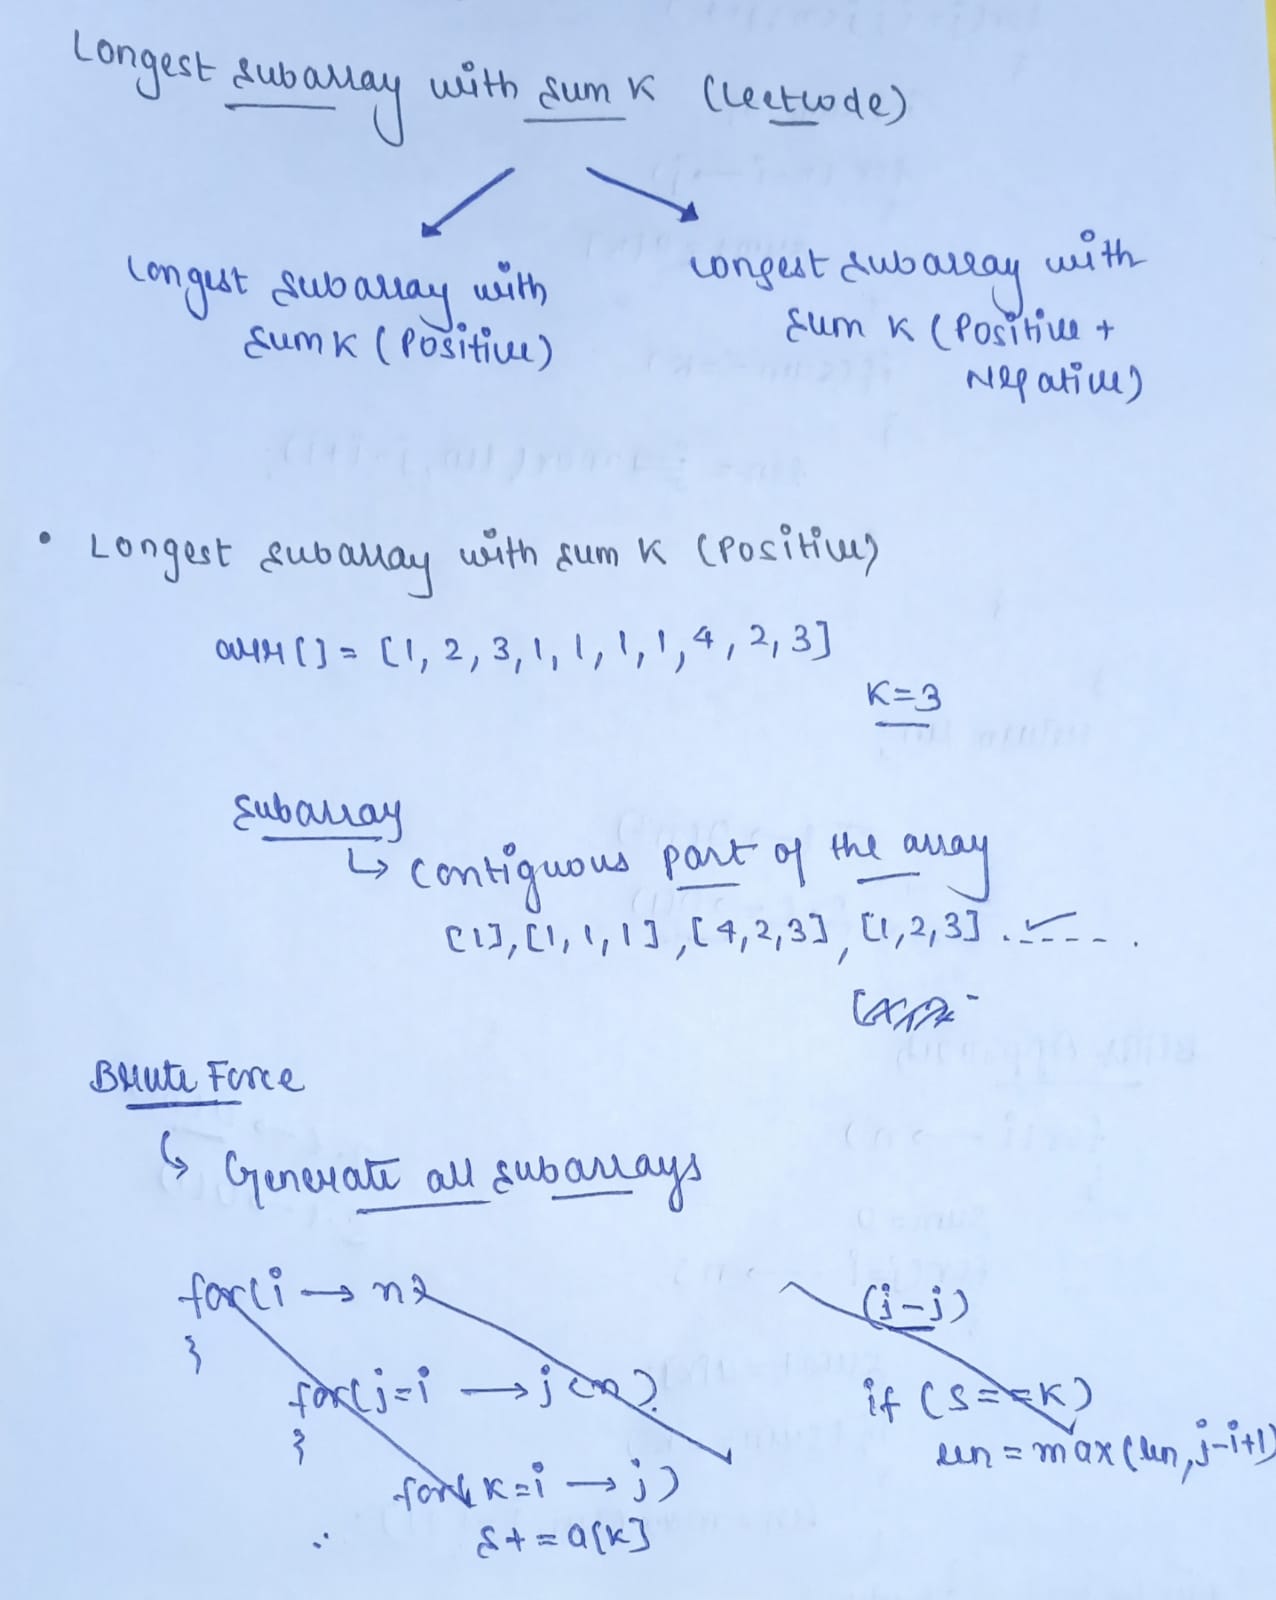 Longest subarray with sum K (Leetcode)
Longest subarray with
sum K (Positive)
Longest subarray with
sum K (Positive +
Negative)
• Longest subarray with sum K (Positive)
arr[] = [1, 2, 3, 1, 1, 1, 1, 4, 2, 3]
K=3
subarray
↳ contiguous part of the array
[1], [1, 1, 1], [4,2,3], [1,2,3] .----- .
Brute Force
↳ Generate all subarrays
for(i → n)
}
for(j=i → j<n)
}
for(k=i → j)
s+=a[k]
(i-j)
if (s==K)
len = max(len, j-i+1)